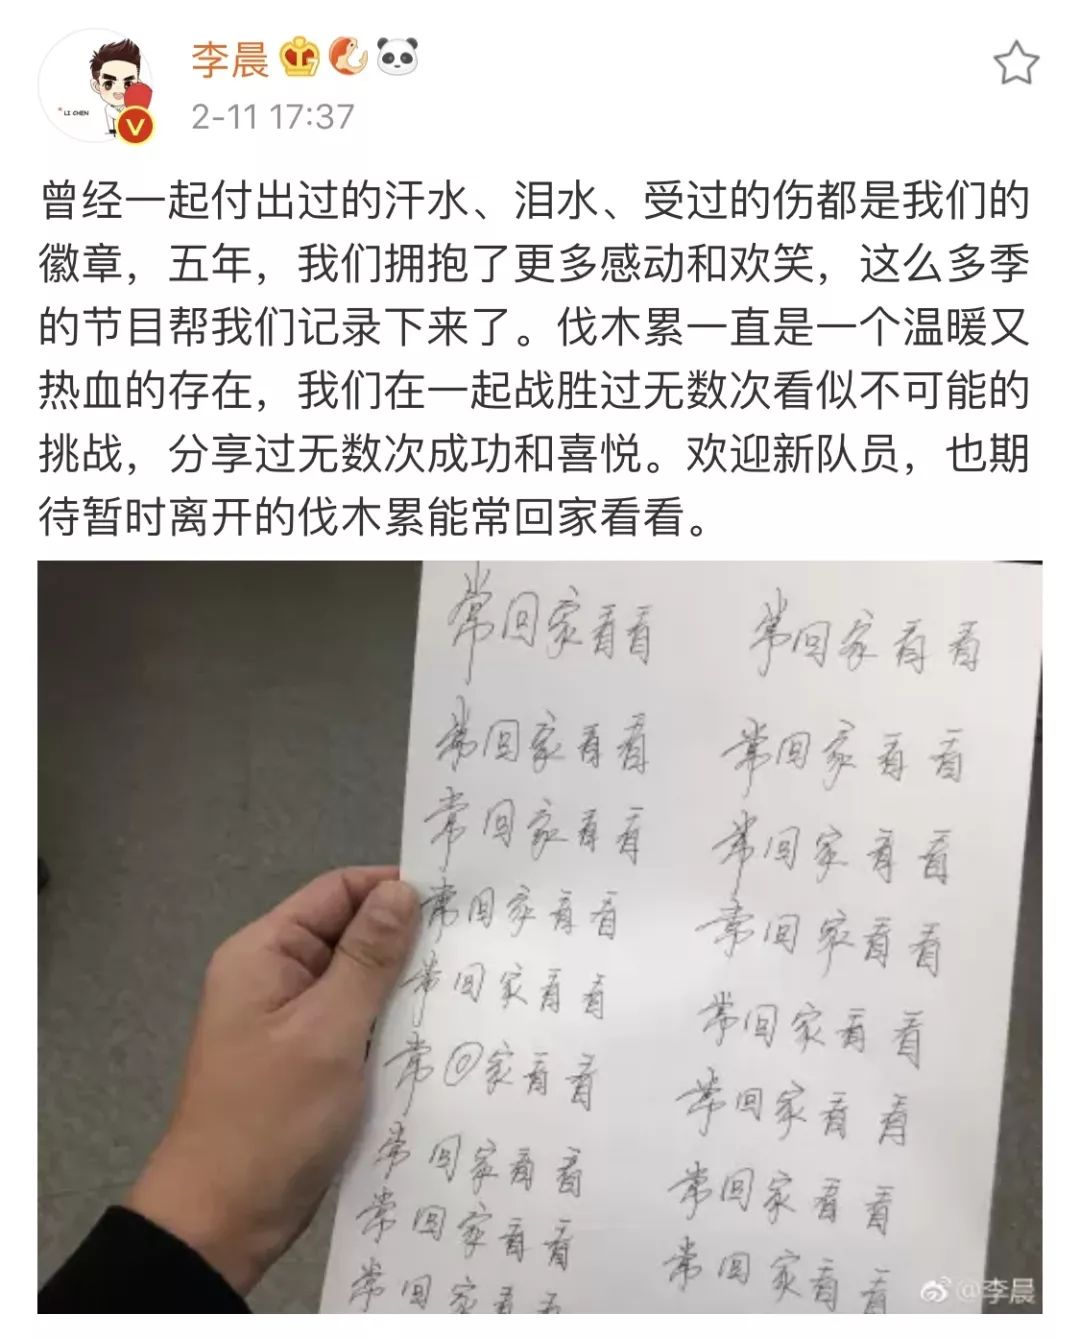 LI CHEN
V
李晨
2-11 17:37
曾经一起付出过的汗水、泪水、受过的伤都是我们的
徽章，五年，我们拥抱了更多感动和欢笑，这么多季
的节目帮我们记录下来了。伐木累一直是一个温暖又
热血的存在，我们在一起战胜过无数次看似不可能的
挑战，分享过无数次成功和喜悦。欢迎新队员，也期
待暂时离开的伐木累能常回家看看。
常回家看看 常回家看看
常回家看看 常回家看看
常回家看看 常回家看看
常回家看看 常回家看看
常回家看看 常回家看看
常回家看看 常回家看看
常回家看看 常回家看看
常回家看看 常回家看看
常回家看看
@李晨